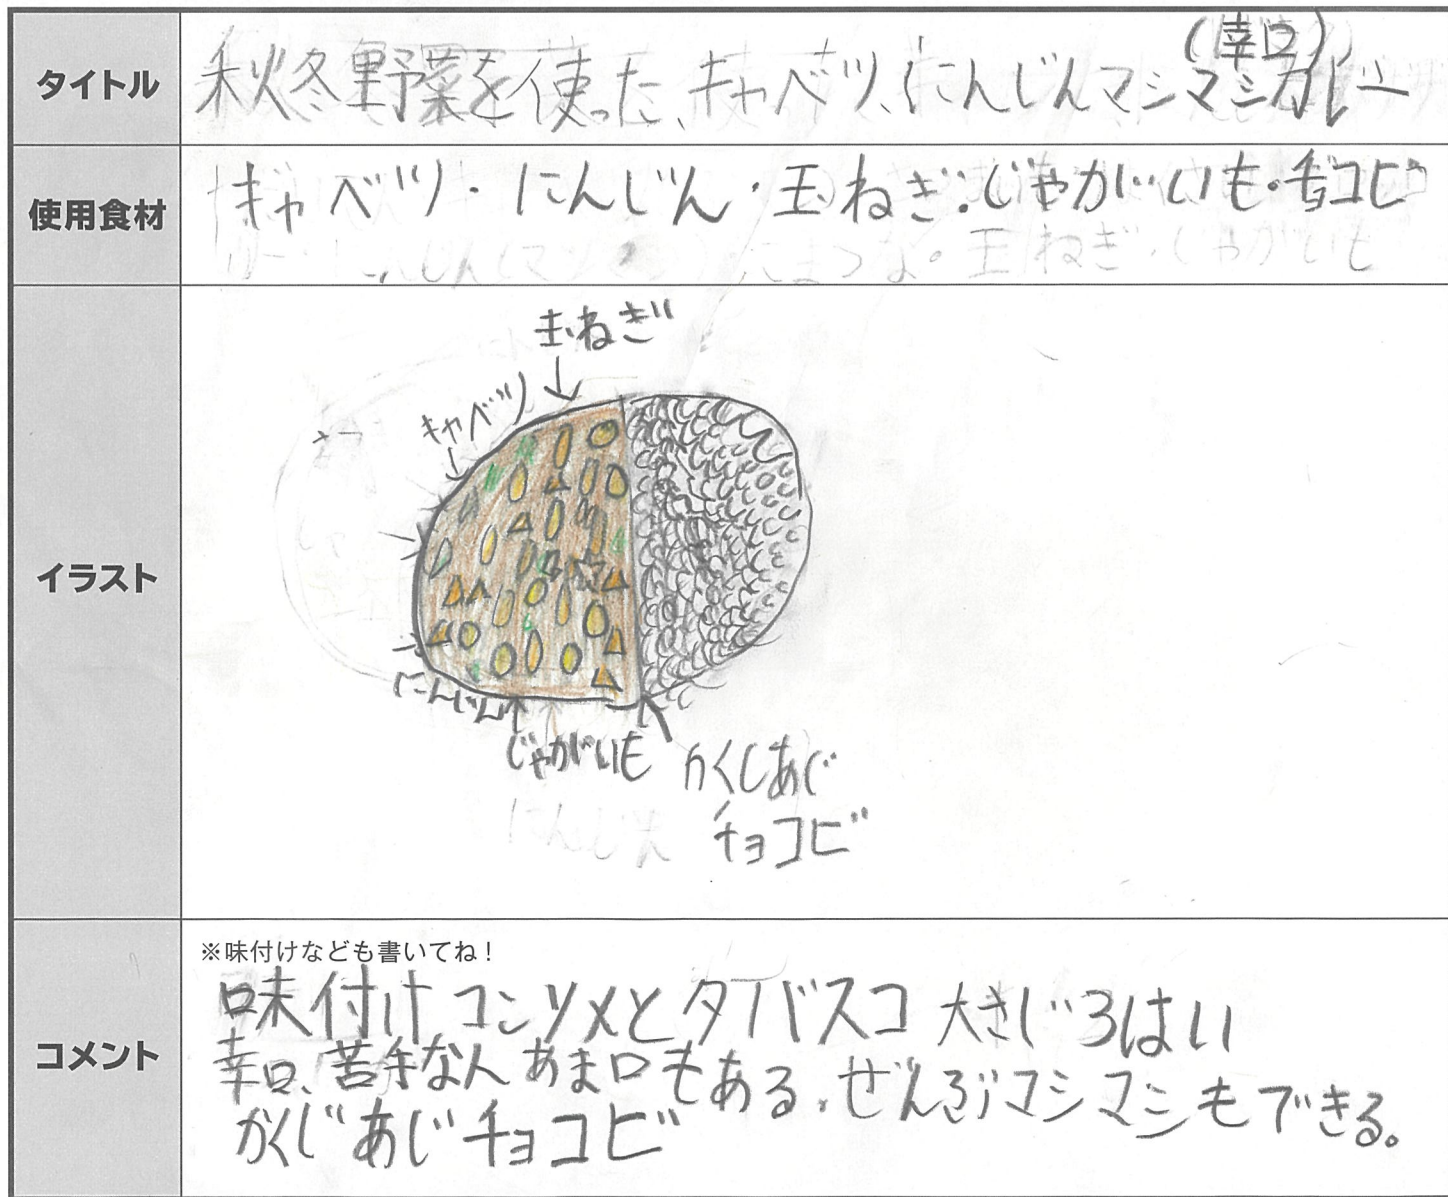 タイトル
(幸口)
秋冬野菜を使った、キャベツ、にんじんマシマシカレー
使用食材
キャベツ・にんじん・玉ねぎ・じゃがいも・チョコビ
玉ねぎ・じゃがいも
イラスト
玉ねぎ
キャベツ
にんじん
じゃがいも
かくしあじ
チョコビ
にんじん
コメント
※味付けなども書いてね!
味付け コンソメとタバスコ 大さじ3はい
幸口、苦手な人 あま口もある。ぜんぶマシマシもできる。
かくじあじチョコビ